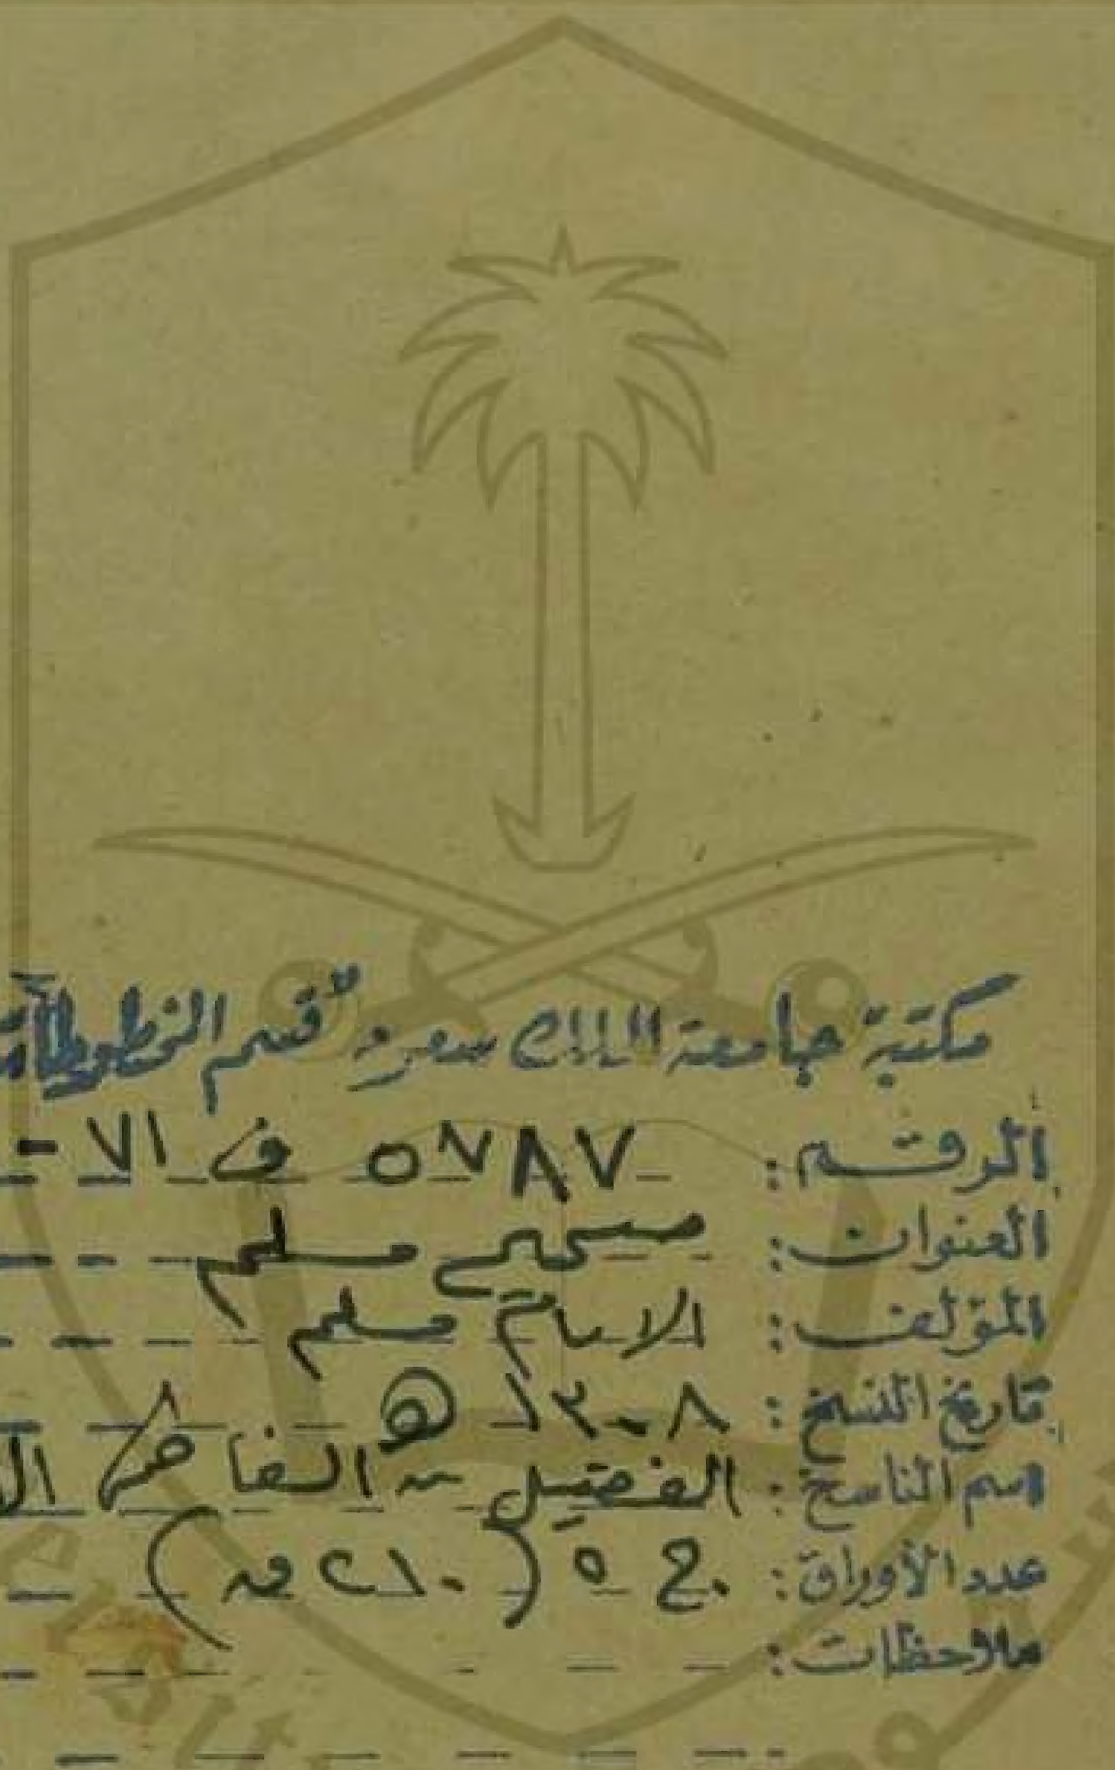 مكتبة جامعة الملك سعود قسم المخطوطات
الرقم: ٥٧٨٧ ف ٧١ -
العنوان: صحيح مسلم
المؤلف: الامام مسلم
تاريخ النسخ: ١٣٠٨ هـ
اسم الناسخ: الفضيل
عدد الأوراق: ج ٥ (٢١٠ ق)
ملاحظات: